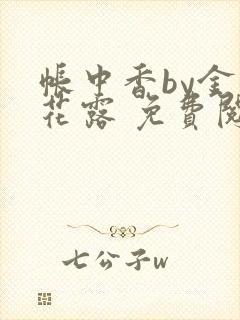 帳中香by金
花露 免費閱
七公子w